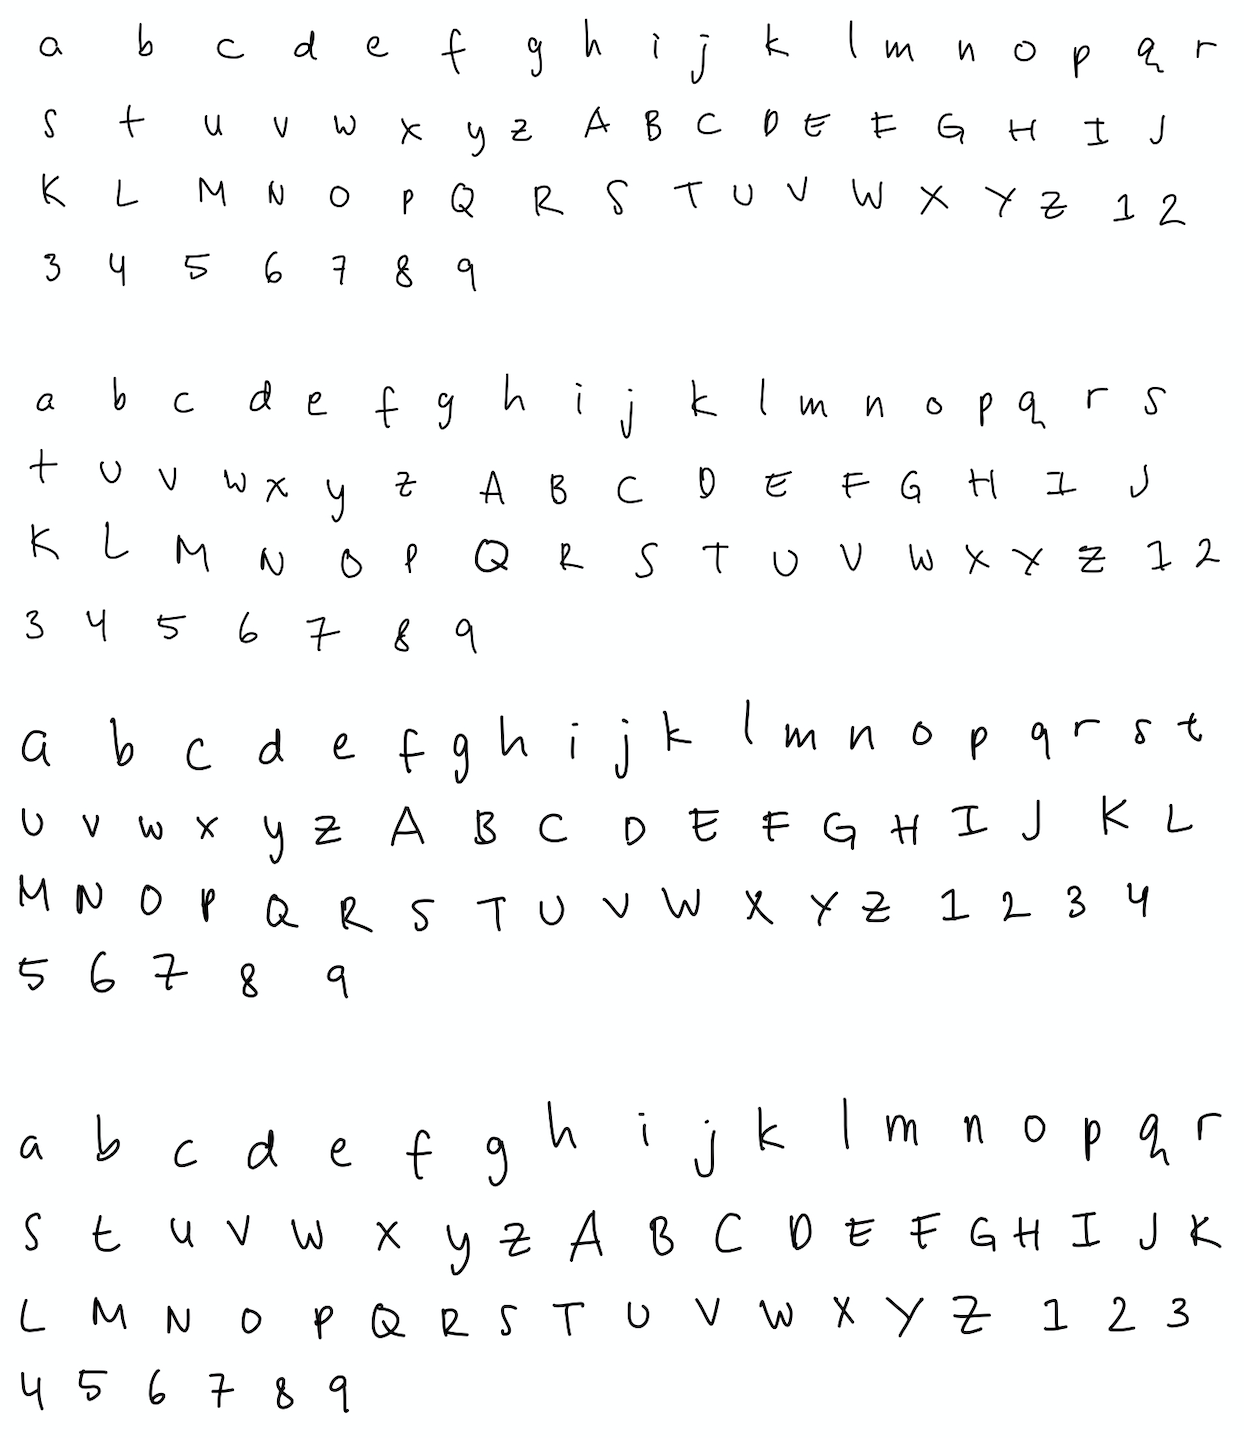 a b c d e f g h i j k l m n o p q r
s t u v w x y z A B C D E F G H I J
K L M N O P Q R S T U V W X Y Z 1 2
3 4 5 6 7 8 9
a b c d e f g h i j k l m n o p q r s
t u v w x y z A B C D E F G H I J
K L M N O P Q R S T U V W X Y Z 1 2
3 4 5 6 7 8 9
a b c d e f g h i j k l m n o p q r s t
u v w x y z A B C D E F G H I J K L
M N O P Q R S T U V W X Y Z 1 2 3 4
5 6 7 8 9
a b c d e f g h i j k l m n o p q r
s t u v w x y z A B C D E F G H I J K
L M N O P Q R S T U V W X Y Z 1 2 3
4 5 6 7 8 9